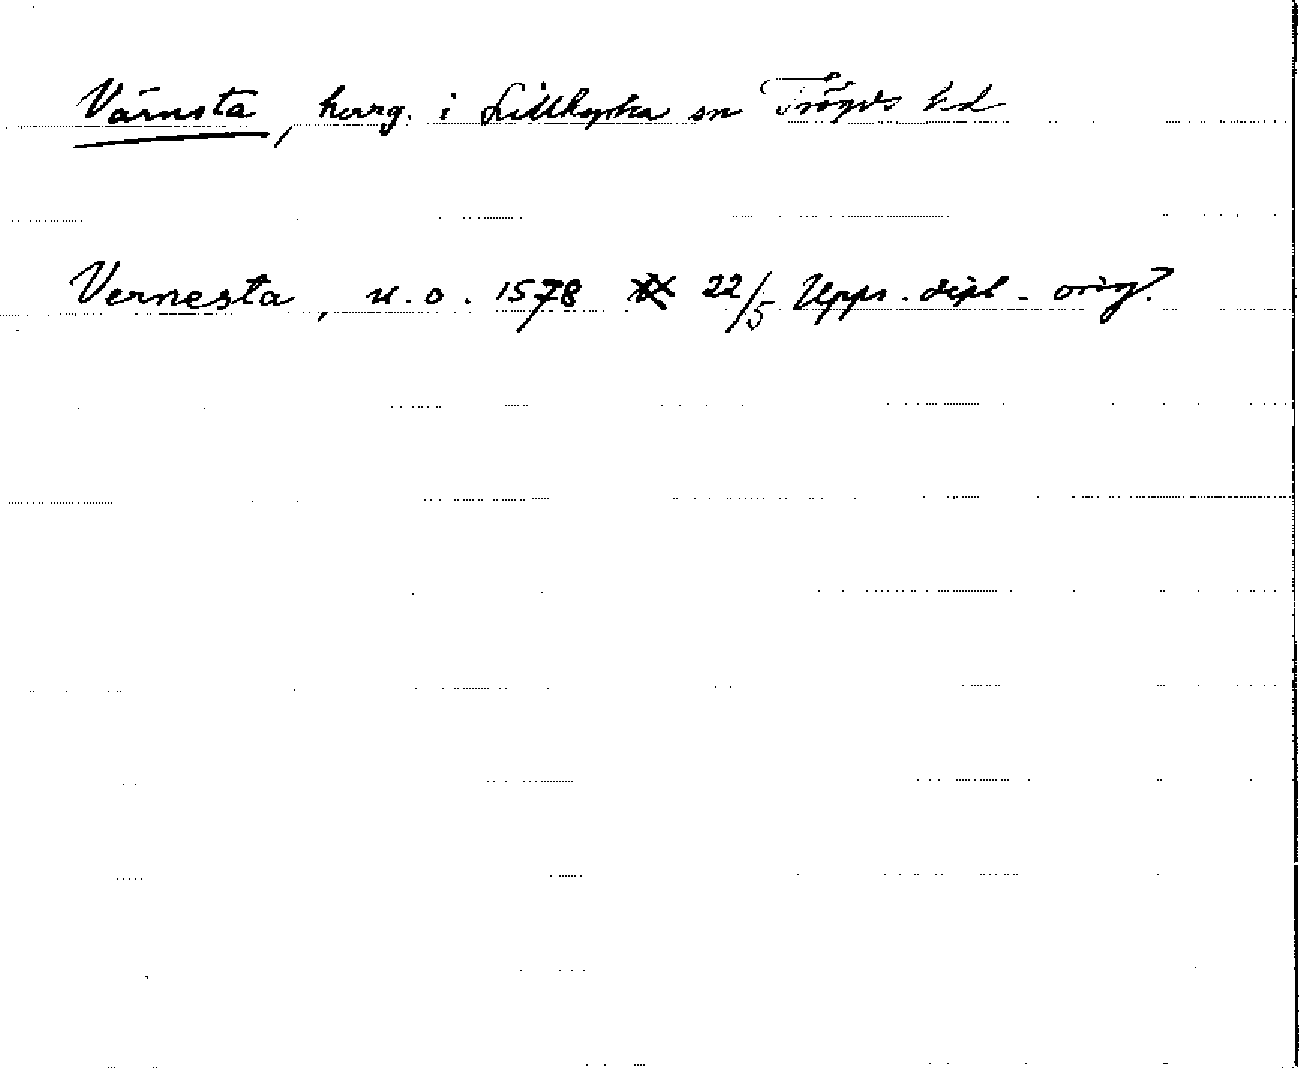 Värnsta, herrg. i Lillkyrka sn Trögds hd
Vernesta, u.o. 1578 22/5 Upps. dipl. orig.